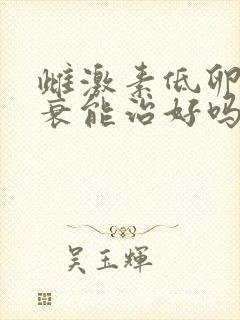 雌激素低卵
衰能治好吗
吴玉輝